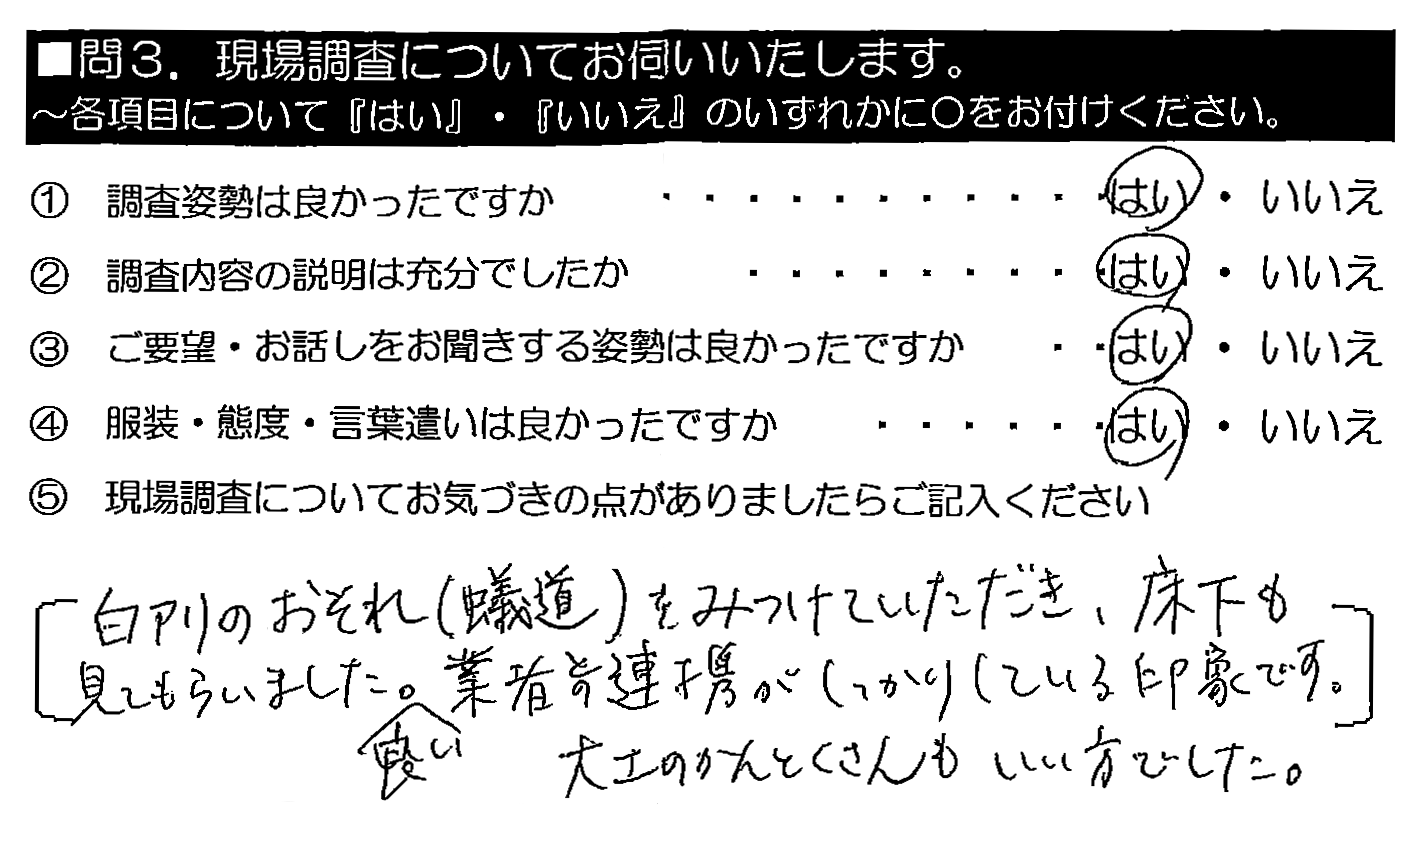 ■問3．現場調査についてお伺いいたします。
～各項目について『はい』・『いいえ』のいずれかに○をお付けください。
① 調査姿勢は良かったですか ・・・・・・・・・・・はい・いいえ
② 調査内容の説明は充分でしたか ・・・・・・・・・はい・いいえ
③ ご要望・お話しをお聞きする姿勢は良かったですか ・・はい・いいえ
④ 服装・態度・言葉遣いは良かったですか ・・・・・・はい・いいえ
⑤ 現場調査についてお気づきの点がありましたらご記入ください
白アリのおそれ(蟻道)をみつけていただき、床下も
見てもらいました。業者の連携がしっかりしている印象です。
良い 大工のかんとくさんもいい方でした。